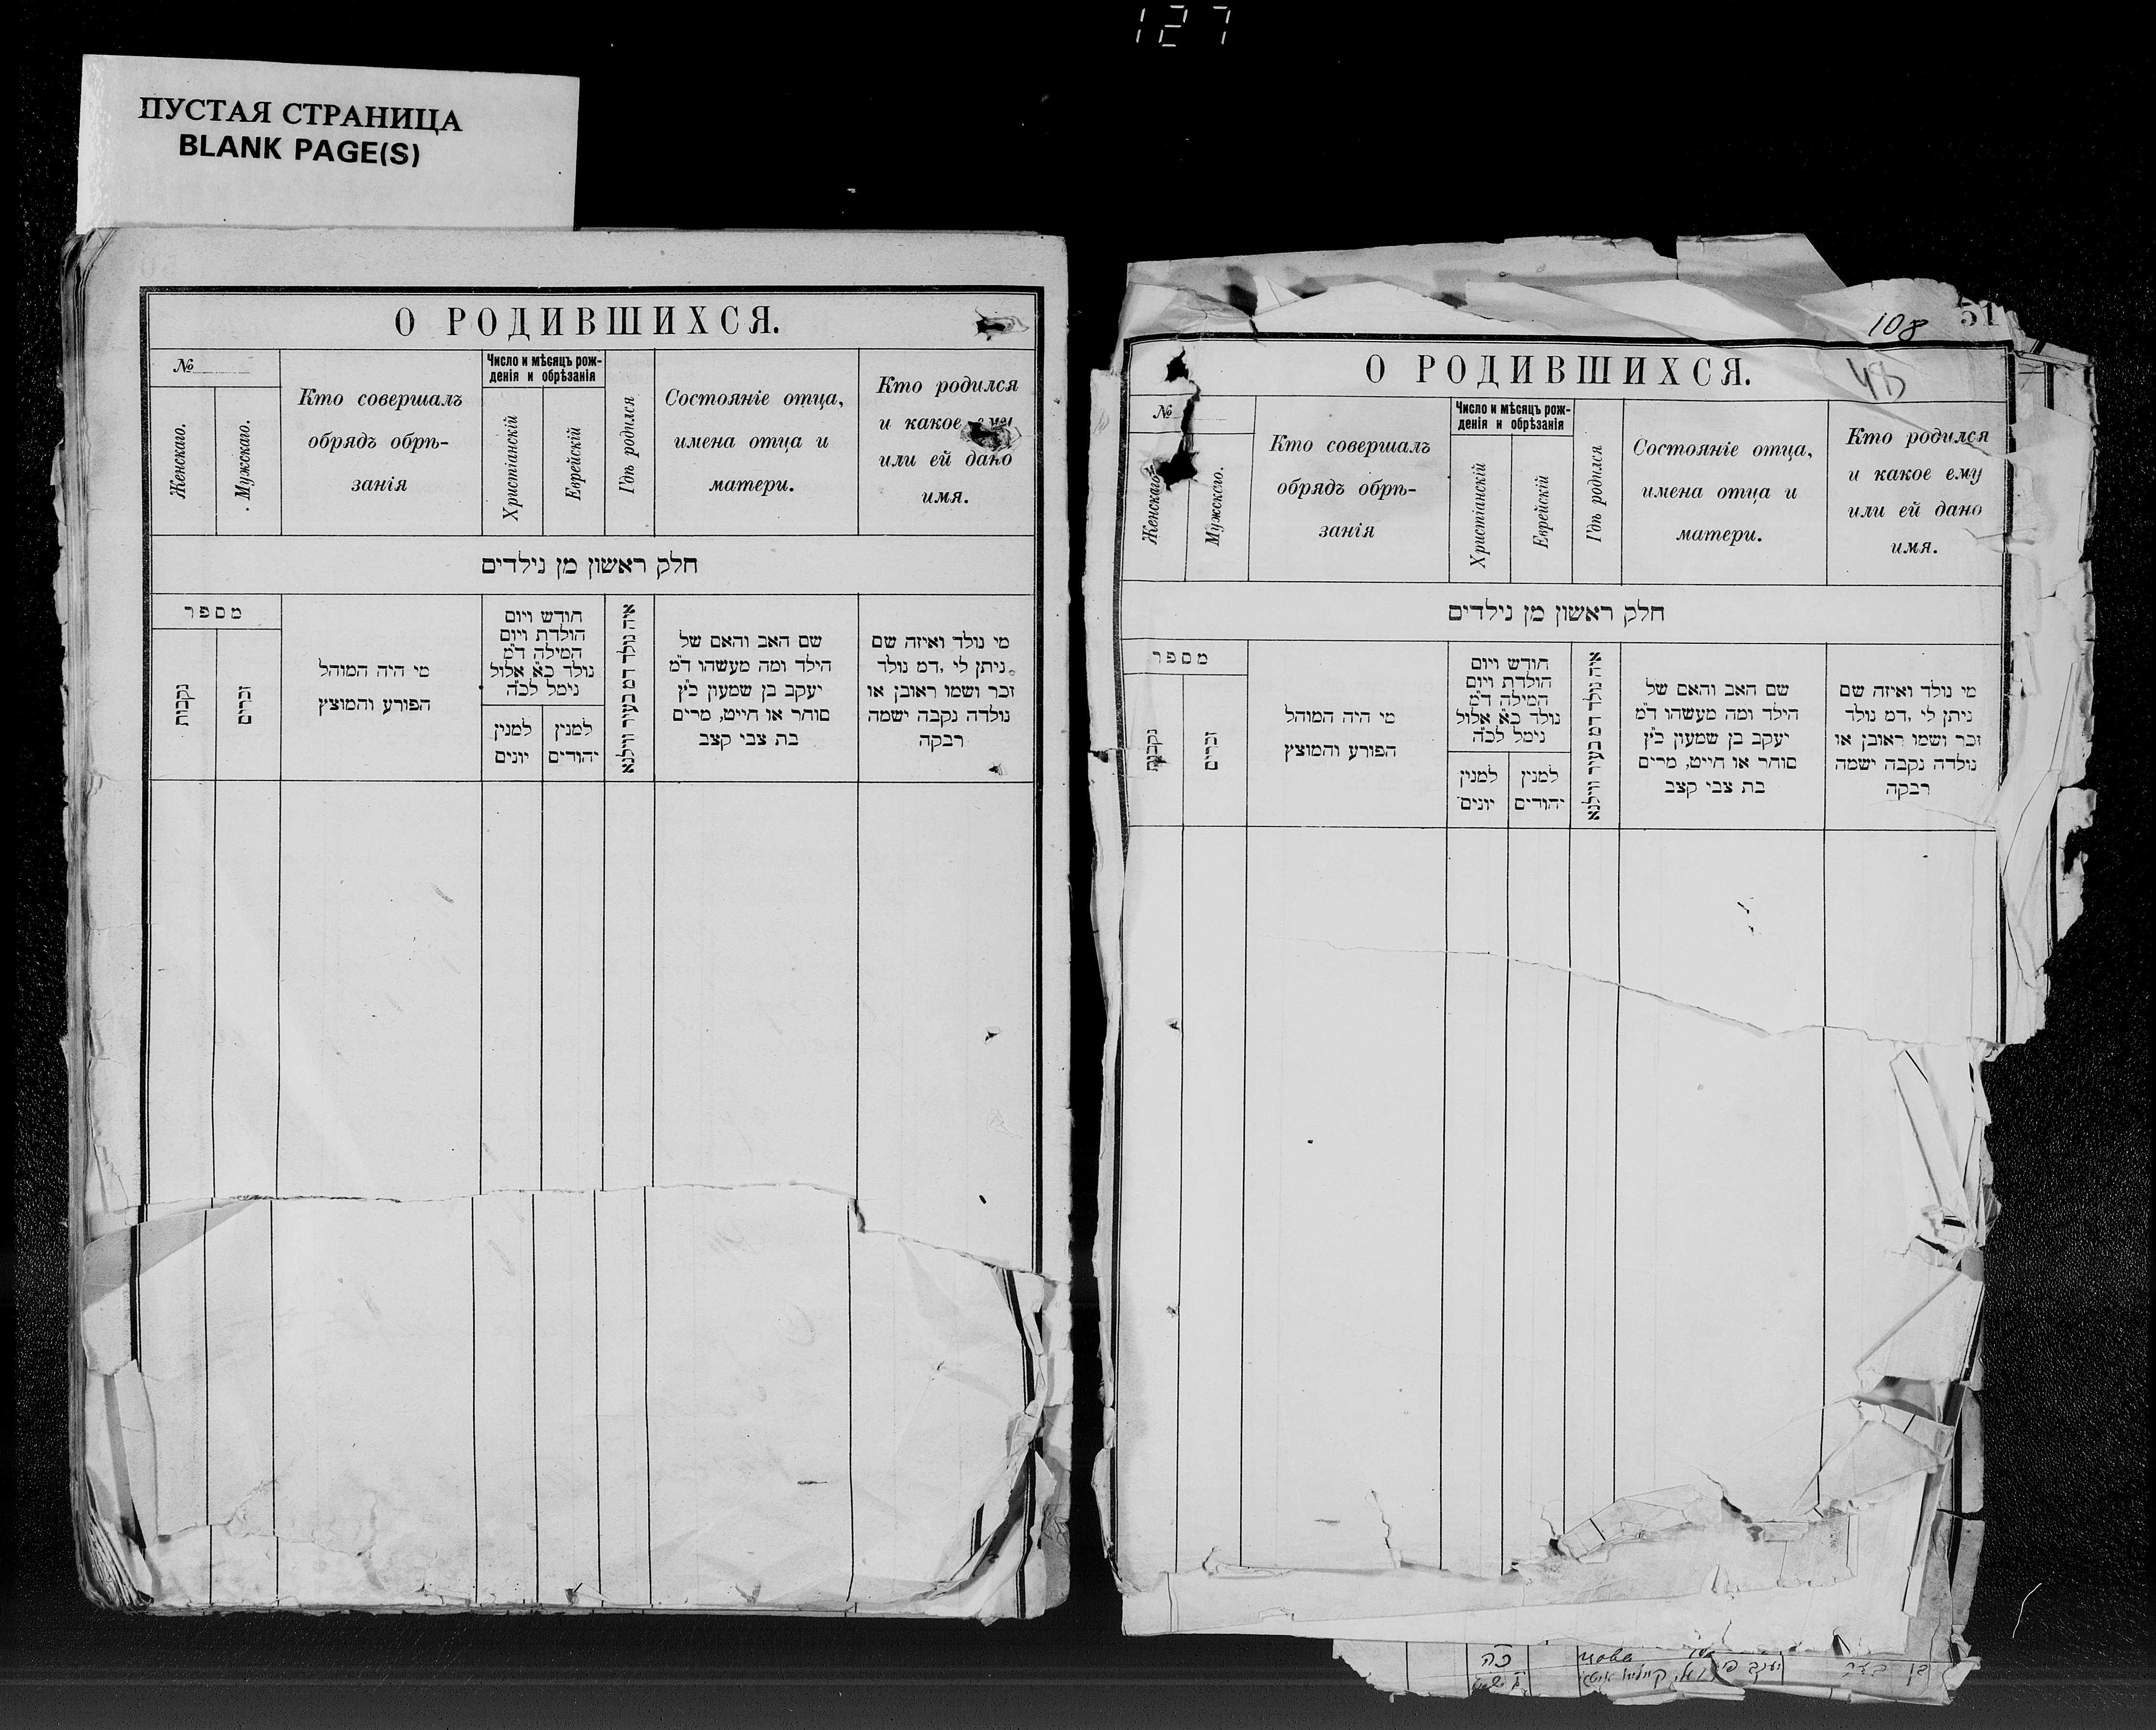 127
ПУСТАЯ СТРАНИЦА
BLANK PAGE(S)
О РОДИВШИХСЯ.
№
Женскаго.
Мужскаго.
Кто совершалъ
обрядъ обрѣ-
занія
Число и мѣсяцъ рож-
денія и обрѣзанія
Христіанскій
Еврейскій
Гдѣ родился
Состояніе отца,
имена отца и
матери.
Кто родился
и какое ему
или ей дано
имя.
חלק ראשון מן נילדים
מספר
נקבות
זכרים
מי היה המוהל
הפורע והמוצץ
חודש ויום
הולדת ויום
המילה ד"מ
נולד כ"א אלול
נימל לכ"ה
למנין
יונים
למנין
יהודים
איה נולד דמ בעיר ווילנא
שם האב והאם של
הילד ומה מעשהו ד"מ
יעקב בן שמעון כ"ץ
סוחר או חייט, מרים
בת צבי קצב
מי נולד ואיזה שם
ניתן לי, דמ נולד
זכר ושמו ראובן או
נולדה נקבה ישמה
רבקה
51
108
О РОДИВШИХСЯ.
№
Женскаго
Мужскаго.
Кто совершалъ
обрядъ обрѣ-
занія
Число и мѣсяцъ рож-
денія и обрѣзанія
Христіанскій
Еврейскій
Гдѣ родился
Состояніе отца,
имена отца и
матери.
Кто родился
и какое ему
или ей дано
имя.
חלק ראשון מן נילדים
מספר
נקבות
זכרים
מי היה המוהל
הפורע והמוצץ
חודש ויום
הולדת ויום
המילה ד"מ
נולד כ"א אלול
נימל לכ"ה
למנין
יונים
למנין
יהודים
איה נולד דמ בעיר ווילנא
שם האב והאם של
הילד ומה מעשהו ד"מ
יעקב בן שמעון כ"ץ
סוחר או חייט, מרים
בת צבי קצב
מי נולד ואיזה שם
ניתן לי, דמ נולד
זכר ושמו ראובן או
נולדה נקבה ישמה
רבקה